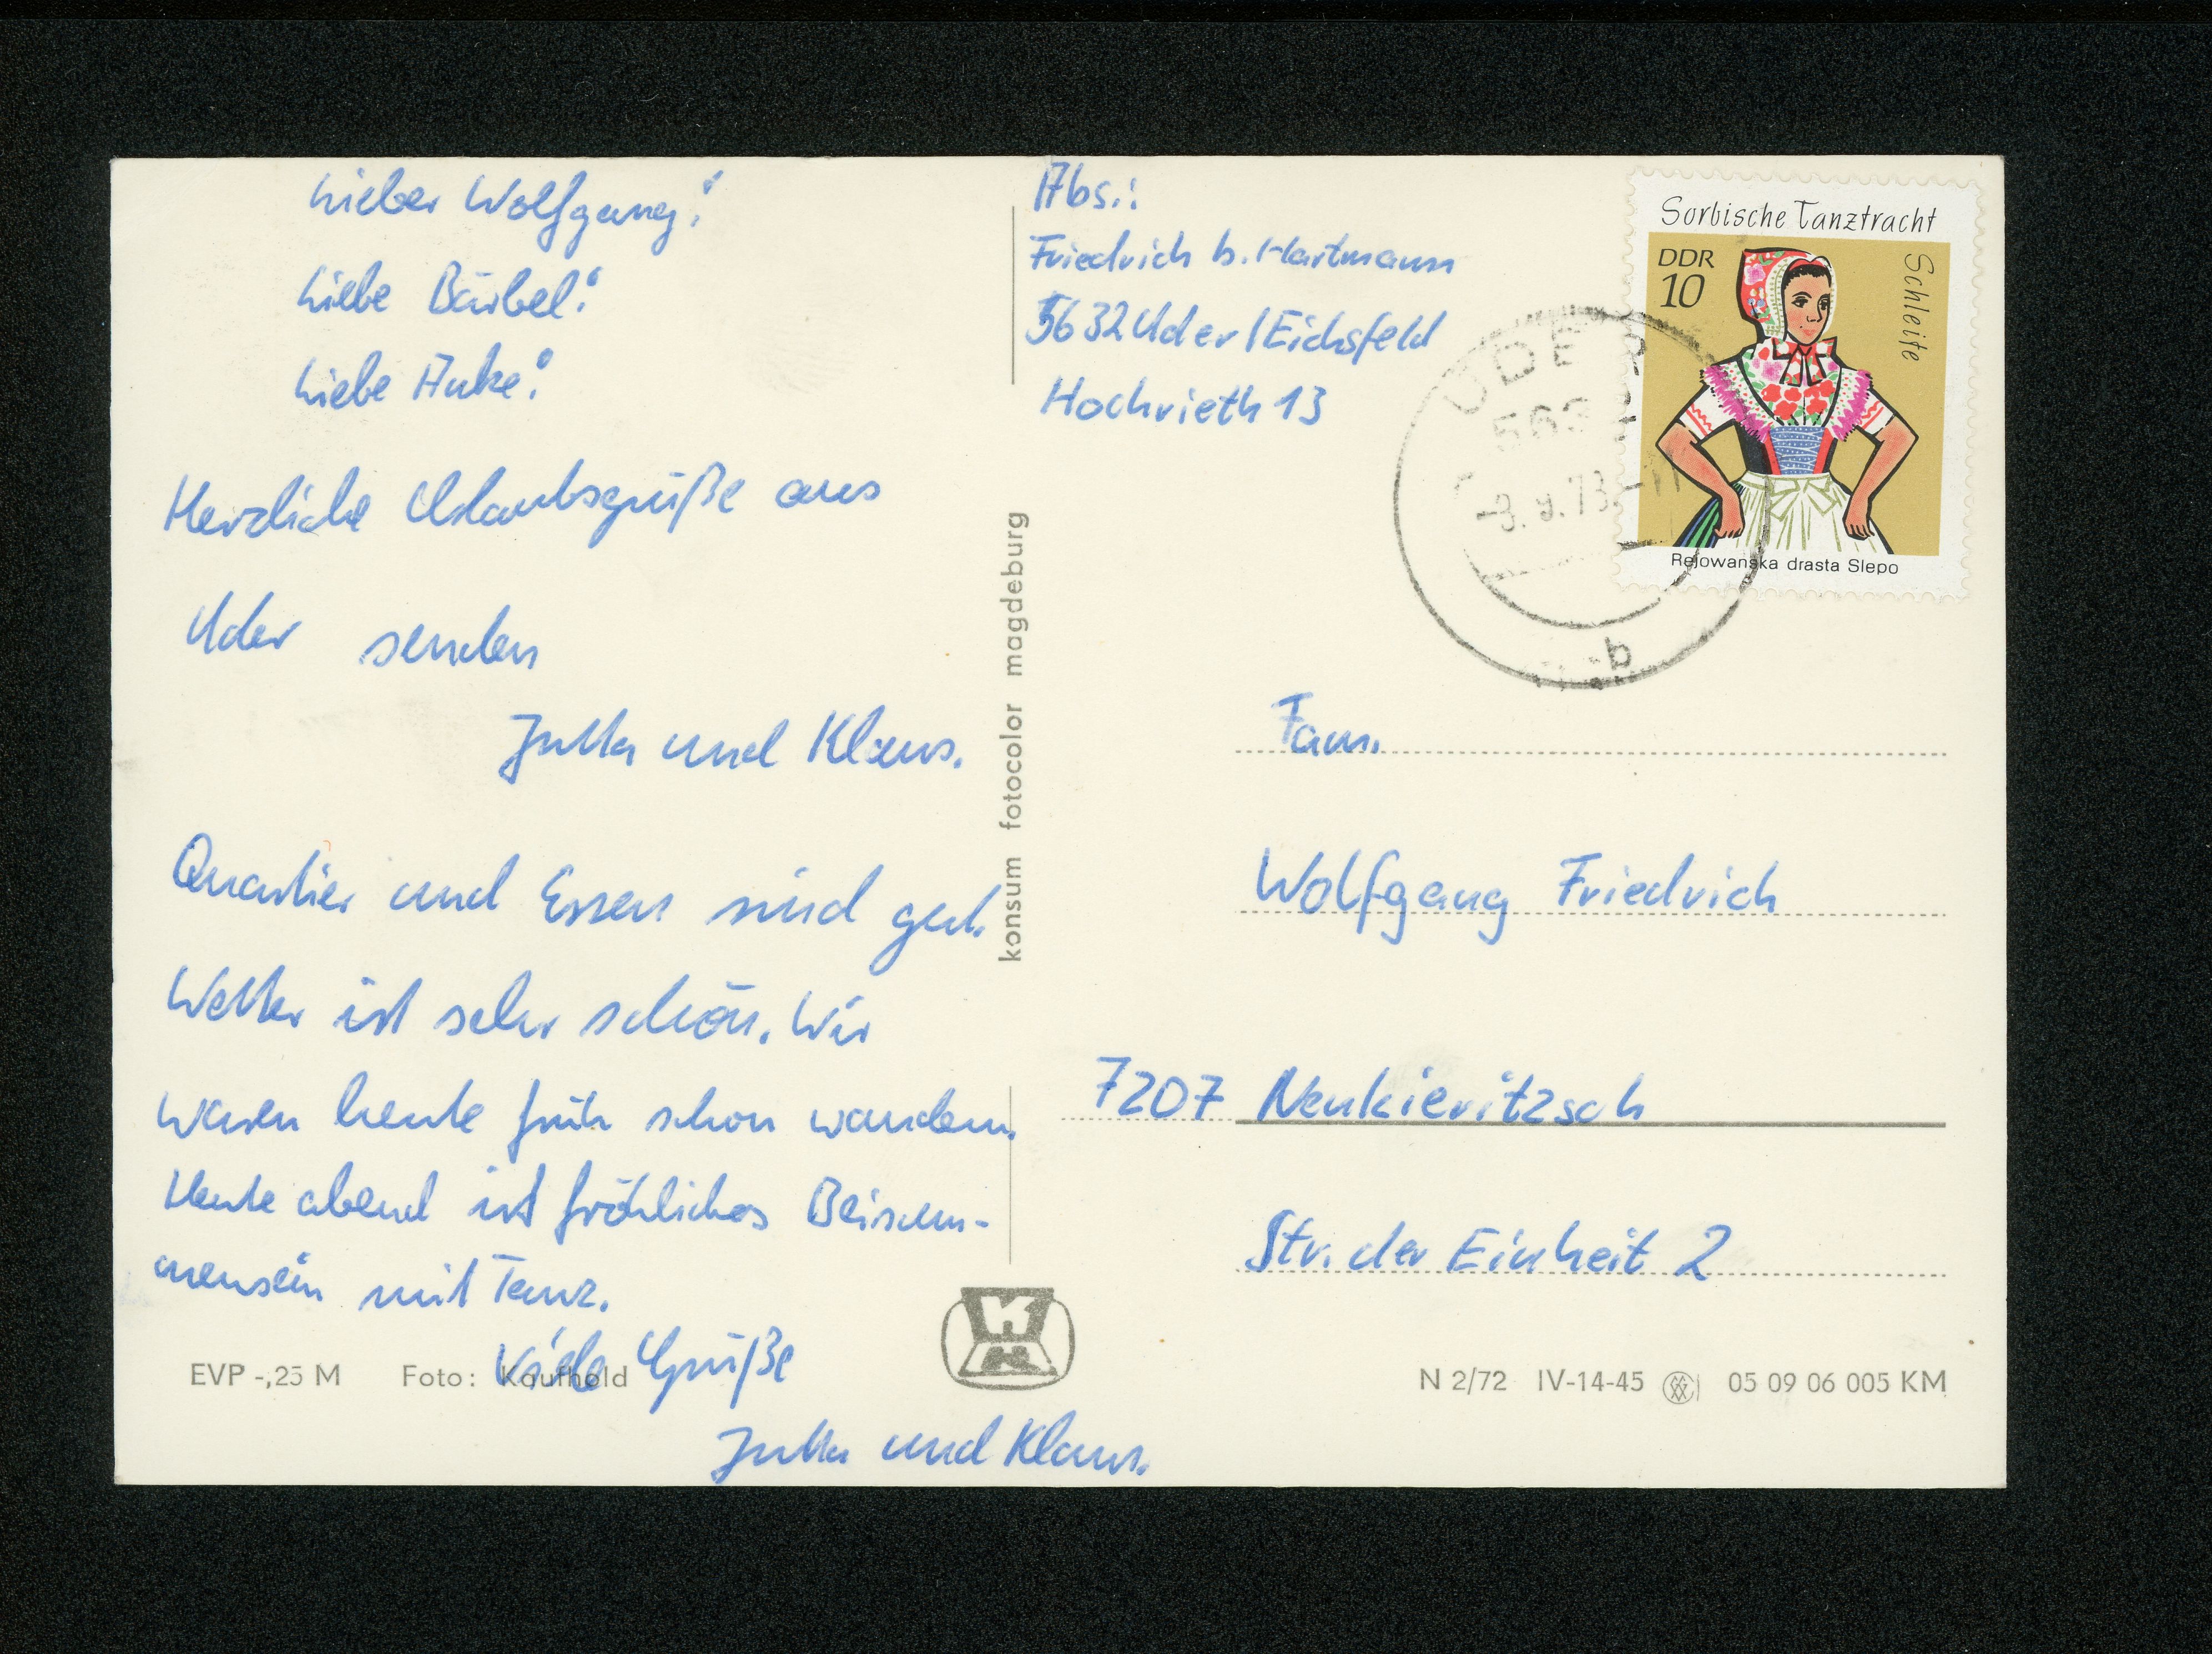 Lieber Wolfgang!
Liebe Bärbel!
Liebe Anke!
Herzliche Urlaubsgrüße aus
Uder senden
Jutta und Klaus.
Quartier und Essen sind gut.
Wetter ist sehr schön. Wir
waren heute früh schon wandern.
Heute abend ist fröhliches Beisam-
mensein mit Tanz.
Viele Grüße
Jutta und Klaus.
EVP -,25 M Foto: Kaufhold
konsum fotocolor magdeburg
Abs.:
Friedrich b. Hartmann
5632 Uder/Eichsfeld
Hochrieth 13
Sorbische Tanztracht
DDR
10
Schleife
Rejowanska drasta Slepo
UDER
563
9.73.-11
b
Fam.
Wolfgang Friedrich
7207 Neukieritzsch
Str. der Einheit 2
N 2/72 IV-14-45 05 09 06 005 KM